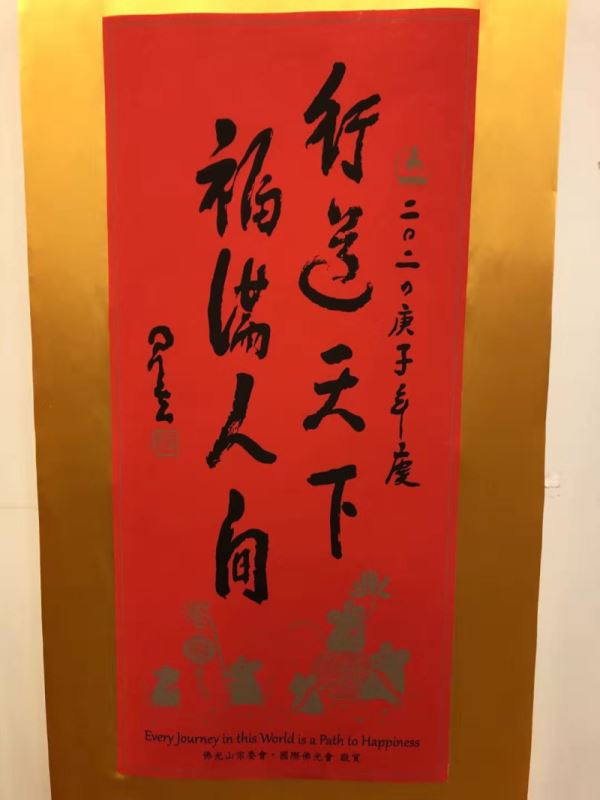 二〇二〇庚子年度
行道天下
福滿人间
星雲
Every Journey in this World is a Path to Happiness
佛光山宗委會・國際佛光會 敬賀